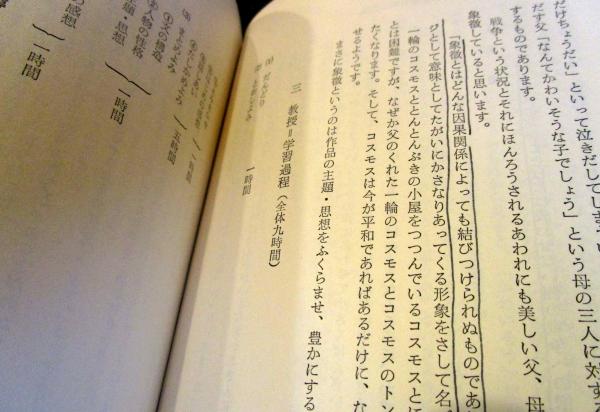 だけちょうだい」といって泣きだしてしま
だす父「なんてかわいそうな子でしょう」という母の三人に対す
するものであります。
戦争という状況とそれにほんろうされるあわれにも美しい父、母
象徴していると思います。
「象徴とはどんな因果関係によっても結びつけられぬものであ
ジとして意味としてたがいにかさなりあってくる形象をさして名
一輪のコスモスととんとんぶきの小屋をつつんでいるコスモスとに
とは困難ですが、なぜか父のくれた一輪のコスモスとコスモスのトン
たくなります。そして、コスモスは今が平和であればあるだけに、な
せるようです。
まさに象徴というのは作品の主題・思想をふくらませ、豊かにする
三 教授=学習過程(全体九時間)
(1) だんどり
一時間
五時間
(3) まとめよみ
①の構造
②人物の性格
主題・思想
一時間
の感想
一時間